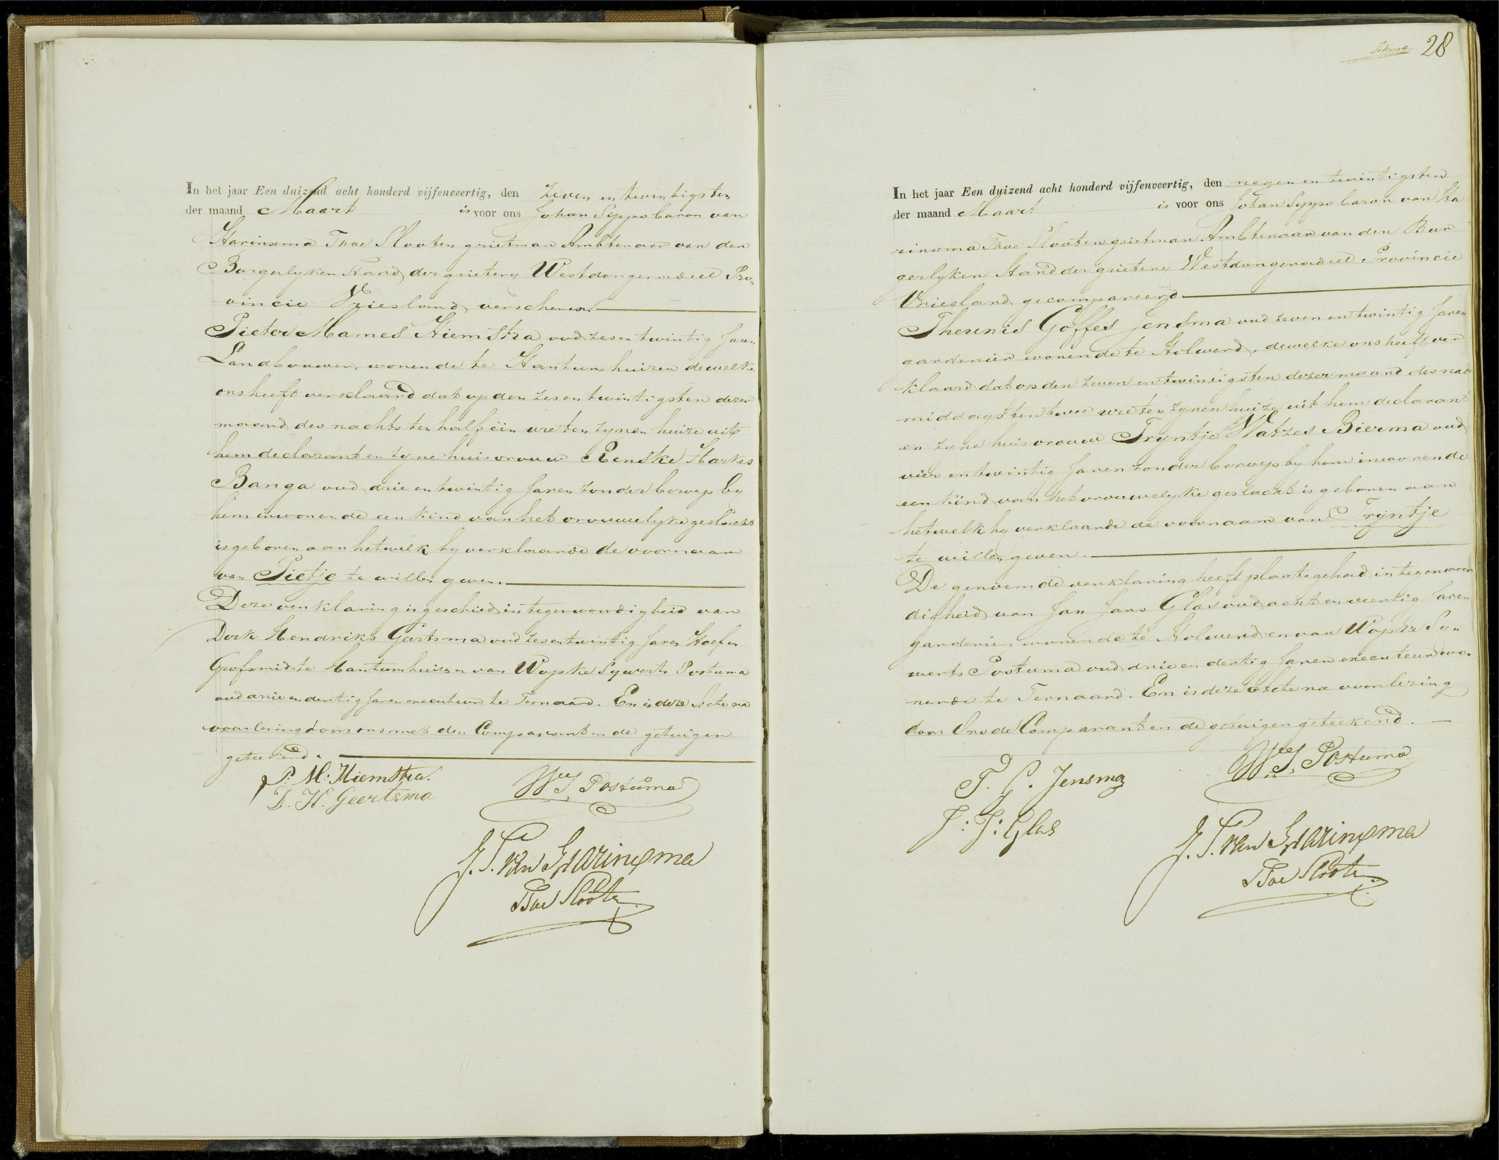 In het jaar Een duizend acht honderd vijfenveertig, den zeven en twintigsten
der maand Maart is voor ons Johan Sippo baron van
Harinxma Thoe Slooten grietman Ambtenaar van den
Burgerlyken Stand der grieteny Westdongeradeel Pro-
vincie Vriesland, verschenen
Pieter Mames Hiemstra oud zes en twintig Jaren
Landbouwer, wonende te Hantumhuizen dewelke
ons heeft verklaard dat op den zes en twintigsten dezer
maand des nachts ten half een ure ten zynen huize uit
hem declarant en zyne huisvrouw Renske Harkes
Banga oud drie en twintig Jaren zonder beroep by
hem inwonende een kind van het vrouwelyke geslacht
is geboren aan hetwelk hy verklaarde de voornaam
van Pietje te willen geven.
Deze verklaring is geschied in tegenwoordigheid van
Dirk Hendriks Geertsma oud zes en twintig Jaren Hoef en
Grofsmid te Hantumhuizen en van Wopke Sjoerds Postuma
oud drie en dertig Jaren executeur te Ternaard. En is deze Acte na
voorlezing door ons met den Comparant en de getuigen
geteekend.
P. M. Hiemstra.
D. H. Geertsma
W. S. Postuma
J. S. van Harinxma
Thoe Slooten
28
In het jaar Een duizend acht honderd vijfenveertig, den negen en twintigsten
der maand Maart is voor ons Johan Sippo baron van Ha
rinxma Thoe Slooten grietman Ambtenaar van den Bur
gerlyken Stand der grieteny Westdongeradeel Provincie
Vriesland, gecompareerd
Theunis Goffes Jensma oud zeven en twintig Jaren
gardenier wonende te Holwerd, dewelke ons heeft ver
klaard dat op den zeven en twintigsten dezer maand des na
middags ten twee ure ten zynen huize uit hem declarant
en zyne huisvrouw Tryntje Watzes Bierma oud
vier en twintig Jaren zonder beroep by hem inwonende
een kind van het vrouwelyke geslacht is geboren aan
hetwelk hy verklaarde de voornaam van Tryntje
te willen geven.
De genoemde verklaring heeft plaats gehad in tegenwoor
digheid van Jan Jans Glas oud acht en veertig Jaren
gardenier wonende te Holwerd en van Wopke Sjo-
erds Postuma oud drie en dertig Jaren executeur wo-
nende te Ternaard. En is deze Acte na voorlezing
door Ons de Comparant en de getuigen geteekend.
T. G. Jensma
J: J: Glas
W. S. Postuma
J. S. van Harinxma
Thoe Slooten